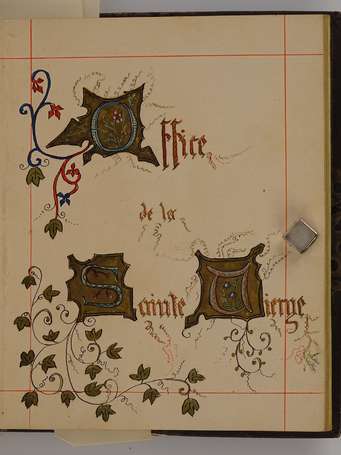 Office
de la
Sainte Vierge